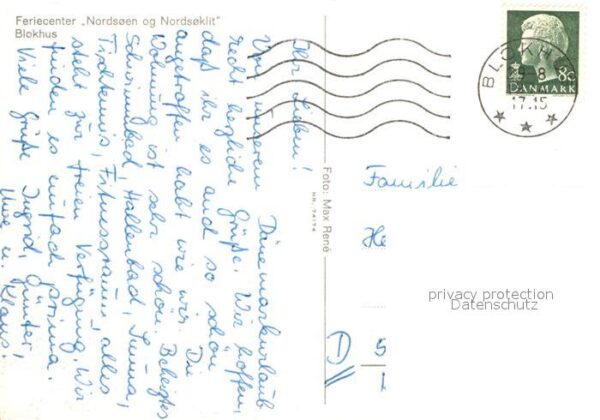 Feriecenter „Nordsøen og Nordsøklit"
Blokhus
Ihr Lieben!
Von unserem Dänemarkurlaub
recht herzliche Grüße. Wir hoffen,
daß ihr es auch so schön
angetroffen habt wie wir. Die
Wohnung ist sehr schön. Beheiztes
Schwimmbad, Hallenbad, Sauna,
Tischtennis, Fitnessraum, alles
steht zur freien Verfügung. Wir
finden es einfach prima.
Viele Grüße Ingrid, Günter,
Uwe u. Klaus!
Foto: Max René
NR. 74174
BLOKHUS
8
17.15
80
DANMARK
Familie
He
privacy protection
Datenschutz
D
5
1